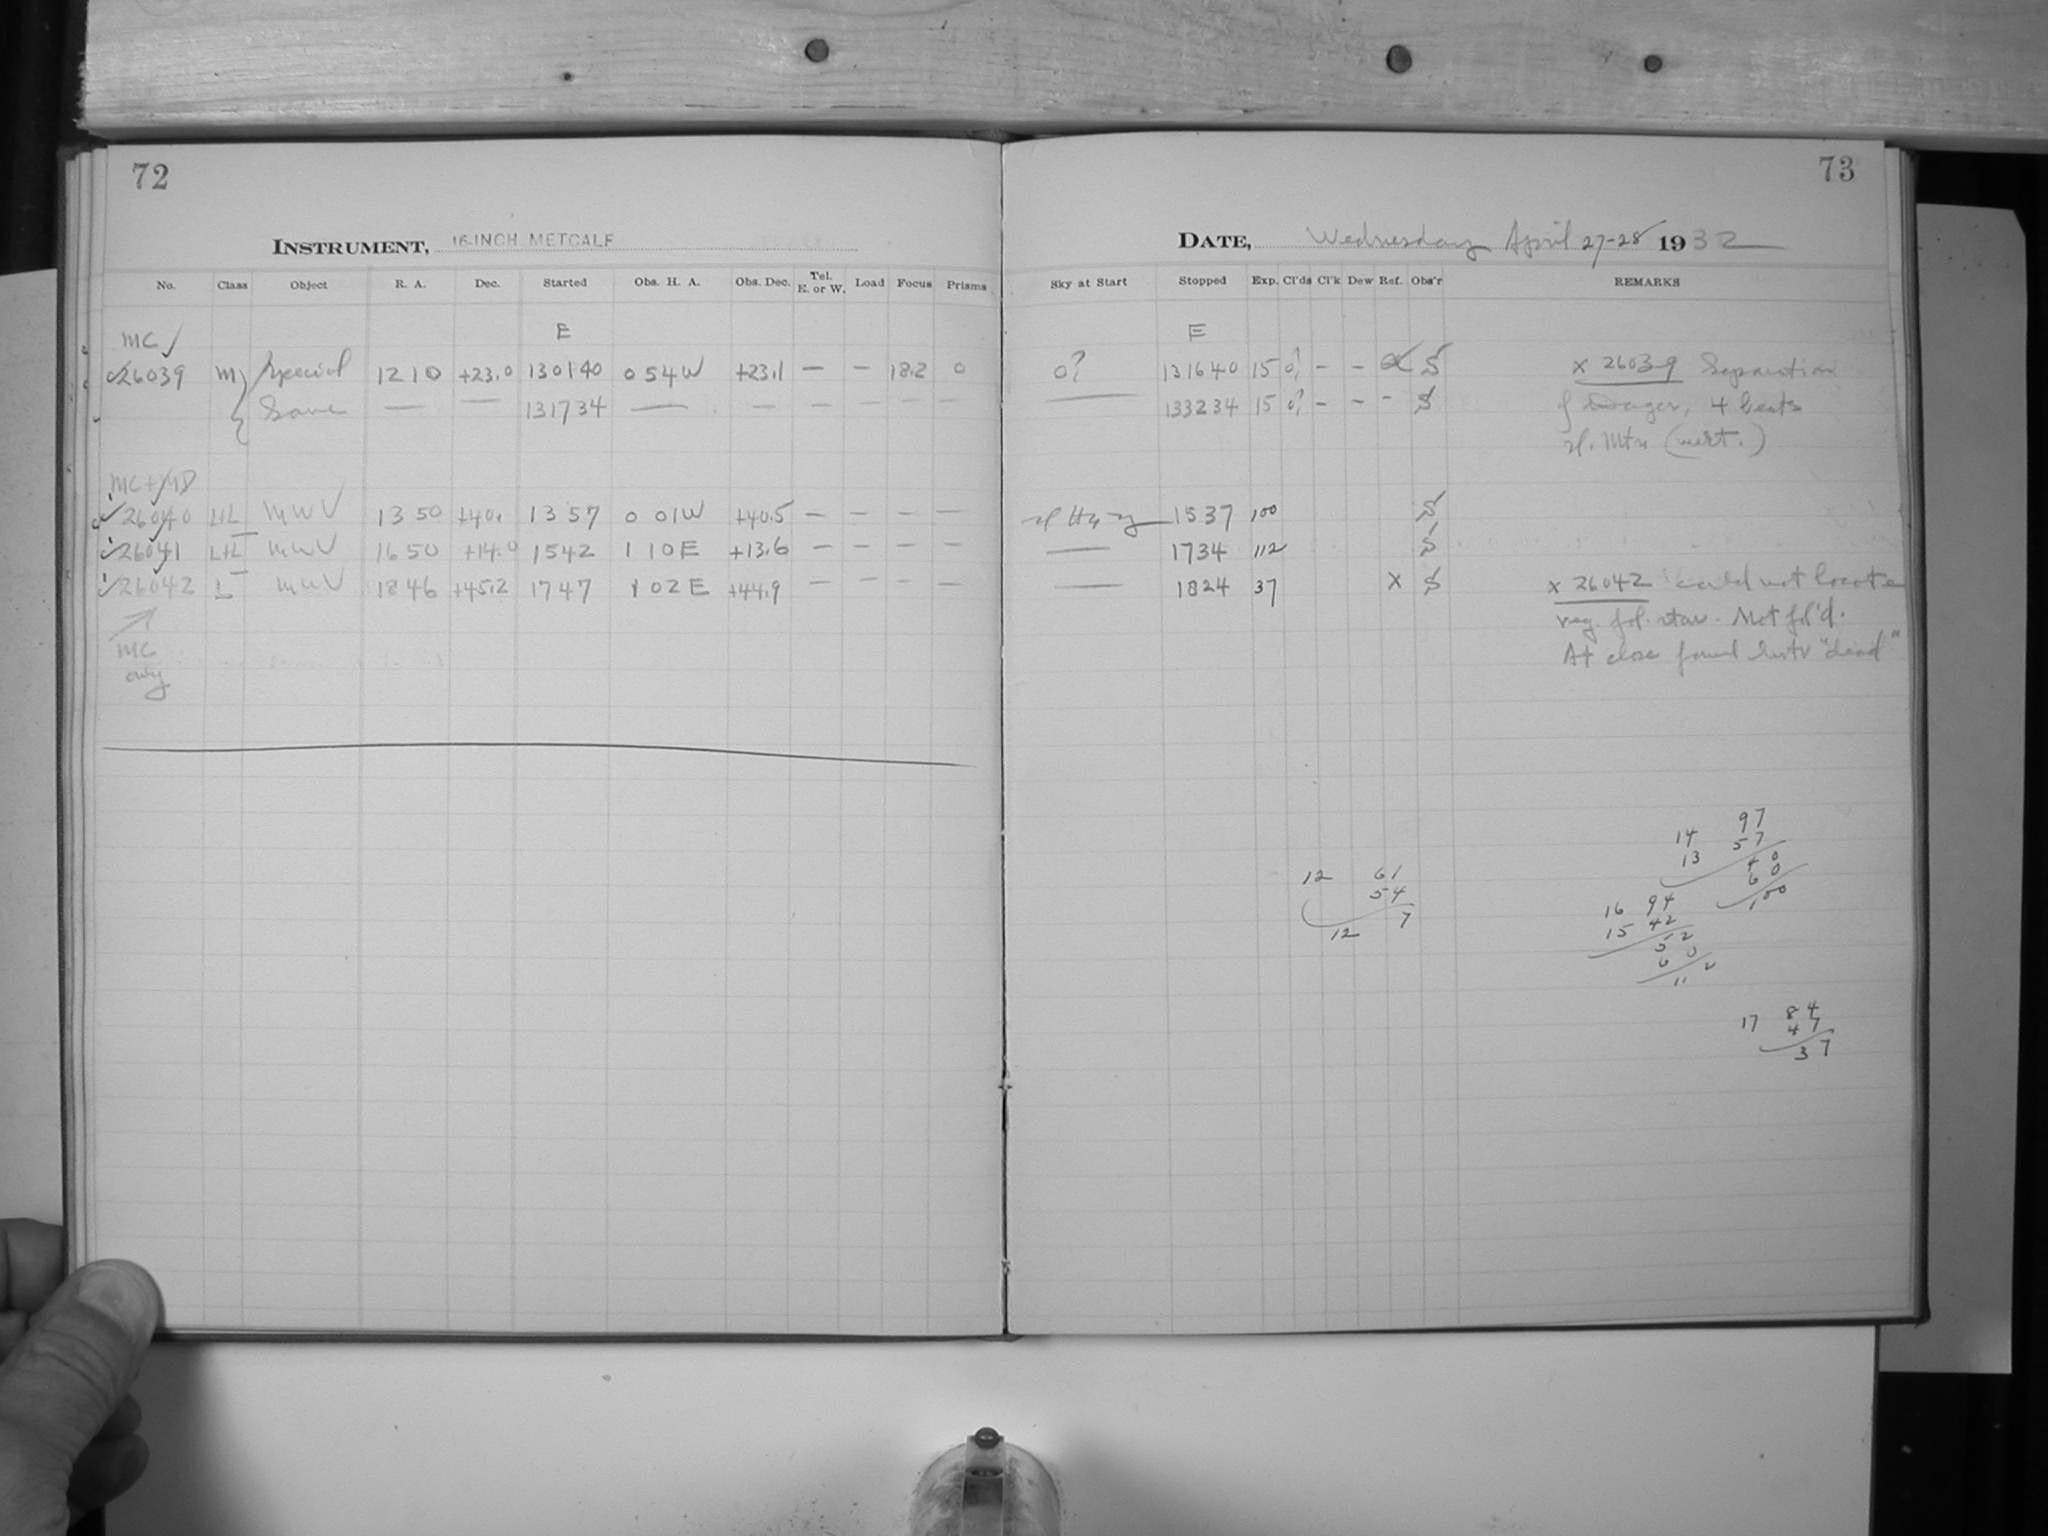 72
INSTRUMENT, 16-INCH METCALF
No. Class Object R. A. Dec. Started Obs. H. A. Obs. Dec. Tel. E. or W. Load Focus Prisms
E
MC
26039 M Special 12 10 +23.0 13 01 40 0 54 W +23.1 — — 18.2 0
Same — — 13 17 34 — — — — — —
MC+MD
26040 L+L MWV 13 50 +40. 13 57 0 01 W +40.5 — — — —
26041 L+L MWV 16 50 +14.0 15 42 1 10 E +13.6 — — — —
26042 L MWV 18 46 +45.2 17 47 1 02 E +44.9 — — — —
MC
only
73
DATE, Wednesday April 27-28 1932
Sky at Start Stopped Exp. Cl'ds Cl'k Dew Ref. Obs'r REMARKS
E
0? 13 16 40 15 0? – – x S x 26039 Separation
— 13 32 34 15 0? – – - S of 4 beats
Mtn (vert.)
15 37 100 S
— 17 34 112 S
— 18 24 37 x S x 26042 could not locate
reg. fol. star. Not fol'd.
At close found instr "dead"
14 97
13 57
40
60
100
12 61
54
12 7
16 94
15 42
52
60
112
17 84
47
37